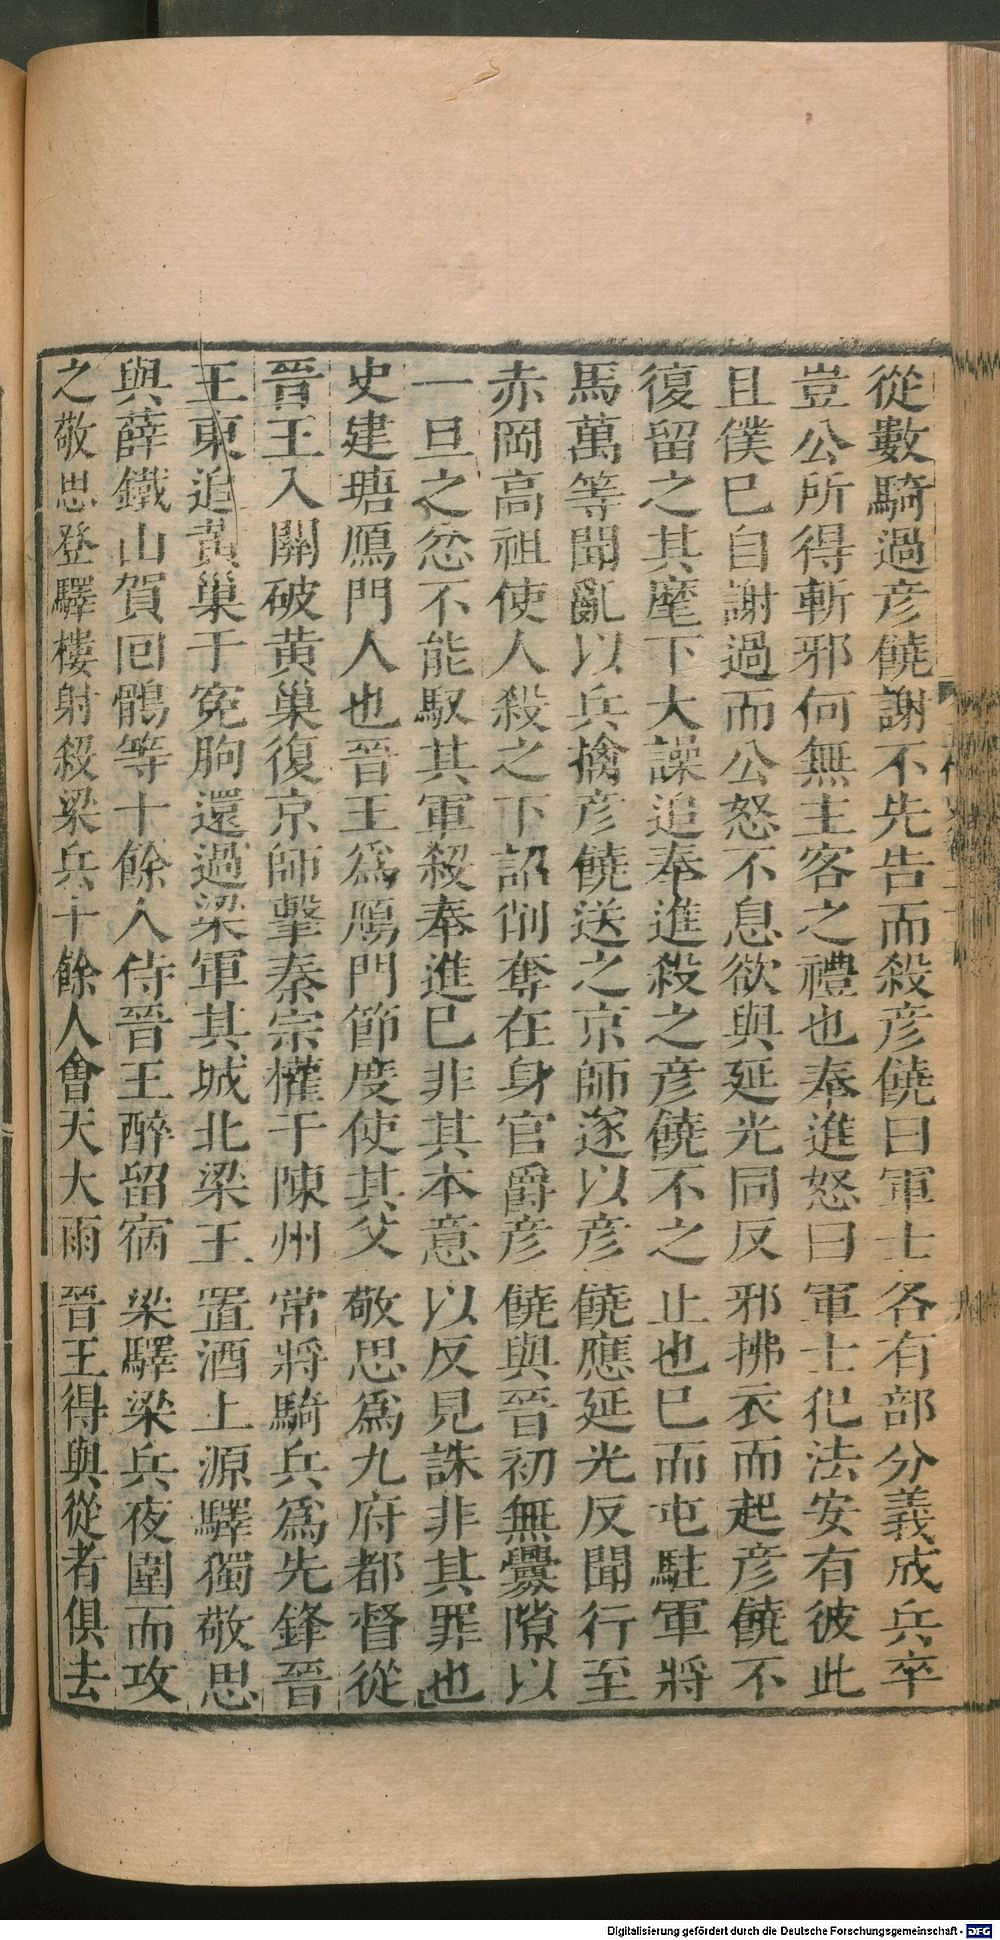 從數騎過彦饒謝不先告而殺彦饒曰軍士各有部分義成兵卒
豈公所得斬邪何無主客之禮也奉進怒曰軍士犯法安有彼此
且僕已自謝過而公怒不息欲與延光同反邪拂衣而起彦饒不
復留之其麾下大譟追奉進殺之彦饒不之止也已而屯駐軍將
馬萬等聞亂以兵擒彦饒送之京師遂以彦饒應延光反聞行至
赤岡高祖使人殺之下詔削奪在身官爵彦饒與晉初無釁隙以
一旦之忿不能馭其軍殺奉進已非其本意以反見誅非其罪也
史建瑭鴈門人也晉王爲鴈門節度使其父敬思爲九府都督從
晉王入關破黄巢復京師擊秦宗權于陳州常將騎兵爲先鋒晉
王東追黄巢于寃朐還過梁軍其城北梁王置酒上源驛獨敬思
與薛鐵山賀回鶻等十餘人侍晉王醉留宿梁驛梁兵夜圍而攻
之敬思登驛樓射殺梁兵十餘人會天大雨晉王得與從者俱去
Digitalisierung gefördert durch die Deutsche Forschungsgemeinschaft - DFG